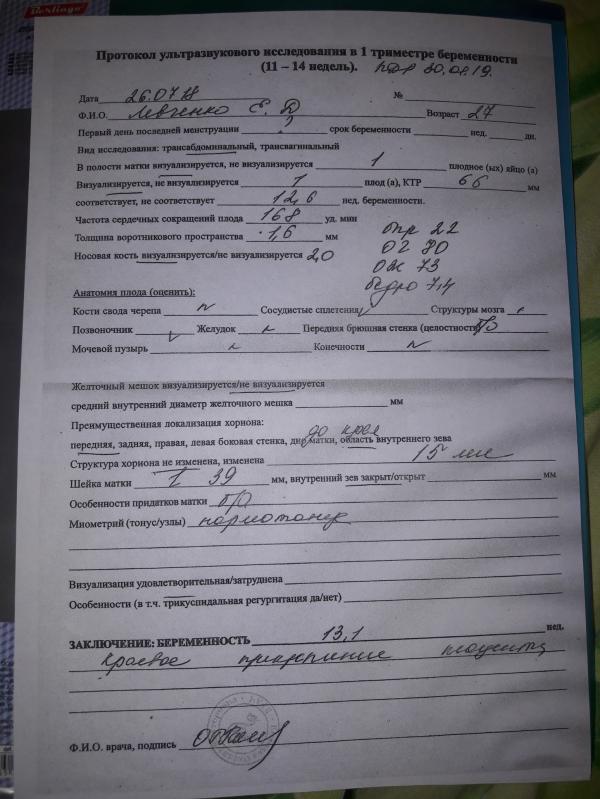 Berlingo
Протокол ультразвукового исследования в 1 триместре беременности
(11 – 14 недель). ПДР 30.01.19.
Дата 26.07.18 №
Ф.И.О. Левченко Е. Возраст 27
Первый день последней менструации ? срок беременности нед. дн.
Вид исследования: трансабдоминальный, трансвагинальный
В полости матки визуализируется, не визуализируется 1 плодное (ых) яйцо (а)
Визуализируется, не визуализируется 1 плод (а), КТР 66 мм
соответствует, не соответствует 12,6 нед. беременности.
Частота сердечных сокращений плода 168 уд. мин
Толщина воротникового пространства 1,6 мм
Носовая кость визуализируется/не визуализируется 2,0
бпр 22
ог 80
ож 73
бедро 7,4
Анатомия плода (оценить):
Кости свода черепа n Сосудистые сплетения Структуры мозга
Позвоночник Желудок Передняя брюшная стенка (целостность)
Мочевой пузырь Конечности n
Желточный мешок визуализируется/не визуализируется
средний внутренний диаметр желточного мешка мм
Преимущественная локализация хориона: до края
передняя, задняя, правая, левая боковая стенка, дно матки, область внутреннего зева
Структура хориона не изменена, изменена 15 мм
Шейка матки 39 мм, внутренний зев закрыт/открыт мм
Особенности придатков матки б/о
Миометрий (тонус/узлы) нормотонус
Визуализация удовлетворительная/затруднена
Особенности (в т.ч. трикуспидальная регургитация да/нет)
ЗАКЛЮЧЕНИЕ: БЕРЕМЕННОСТЬ 13,1 нед.
Краевое прикрепление плаценты
Ф.И.О. врача, подпись